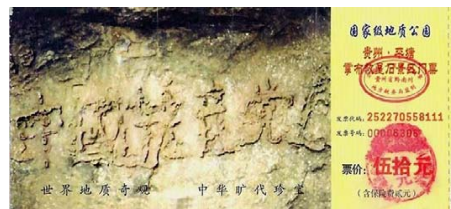 中國共产党亡
世界地质奇观 中华旷代珍宝
国家级地质公园
贵州·平塘
掌布
景区门票
发票代码: 252270558111
发票号码: 00006306
票价: 伍拾元
(含保险费贰元)